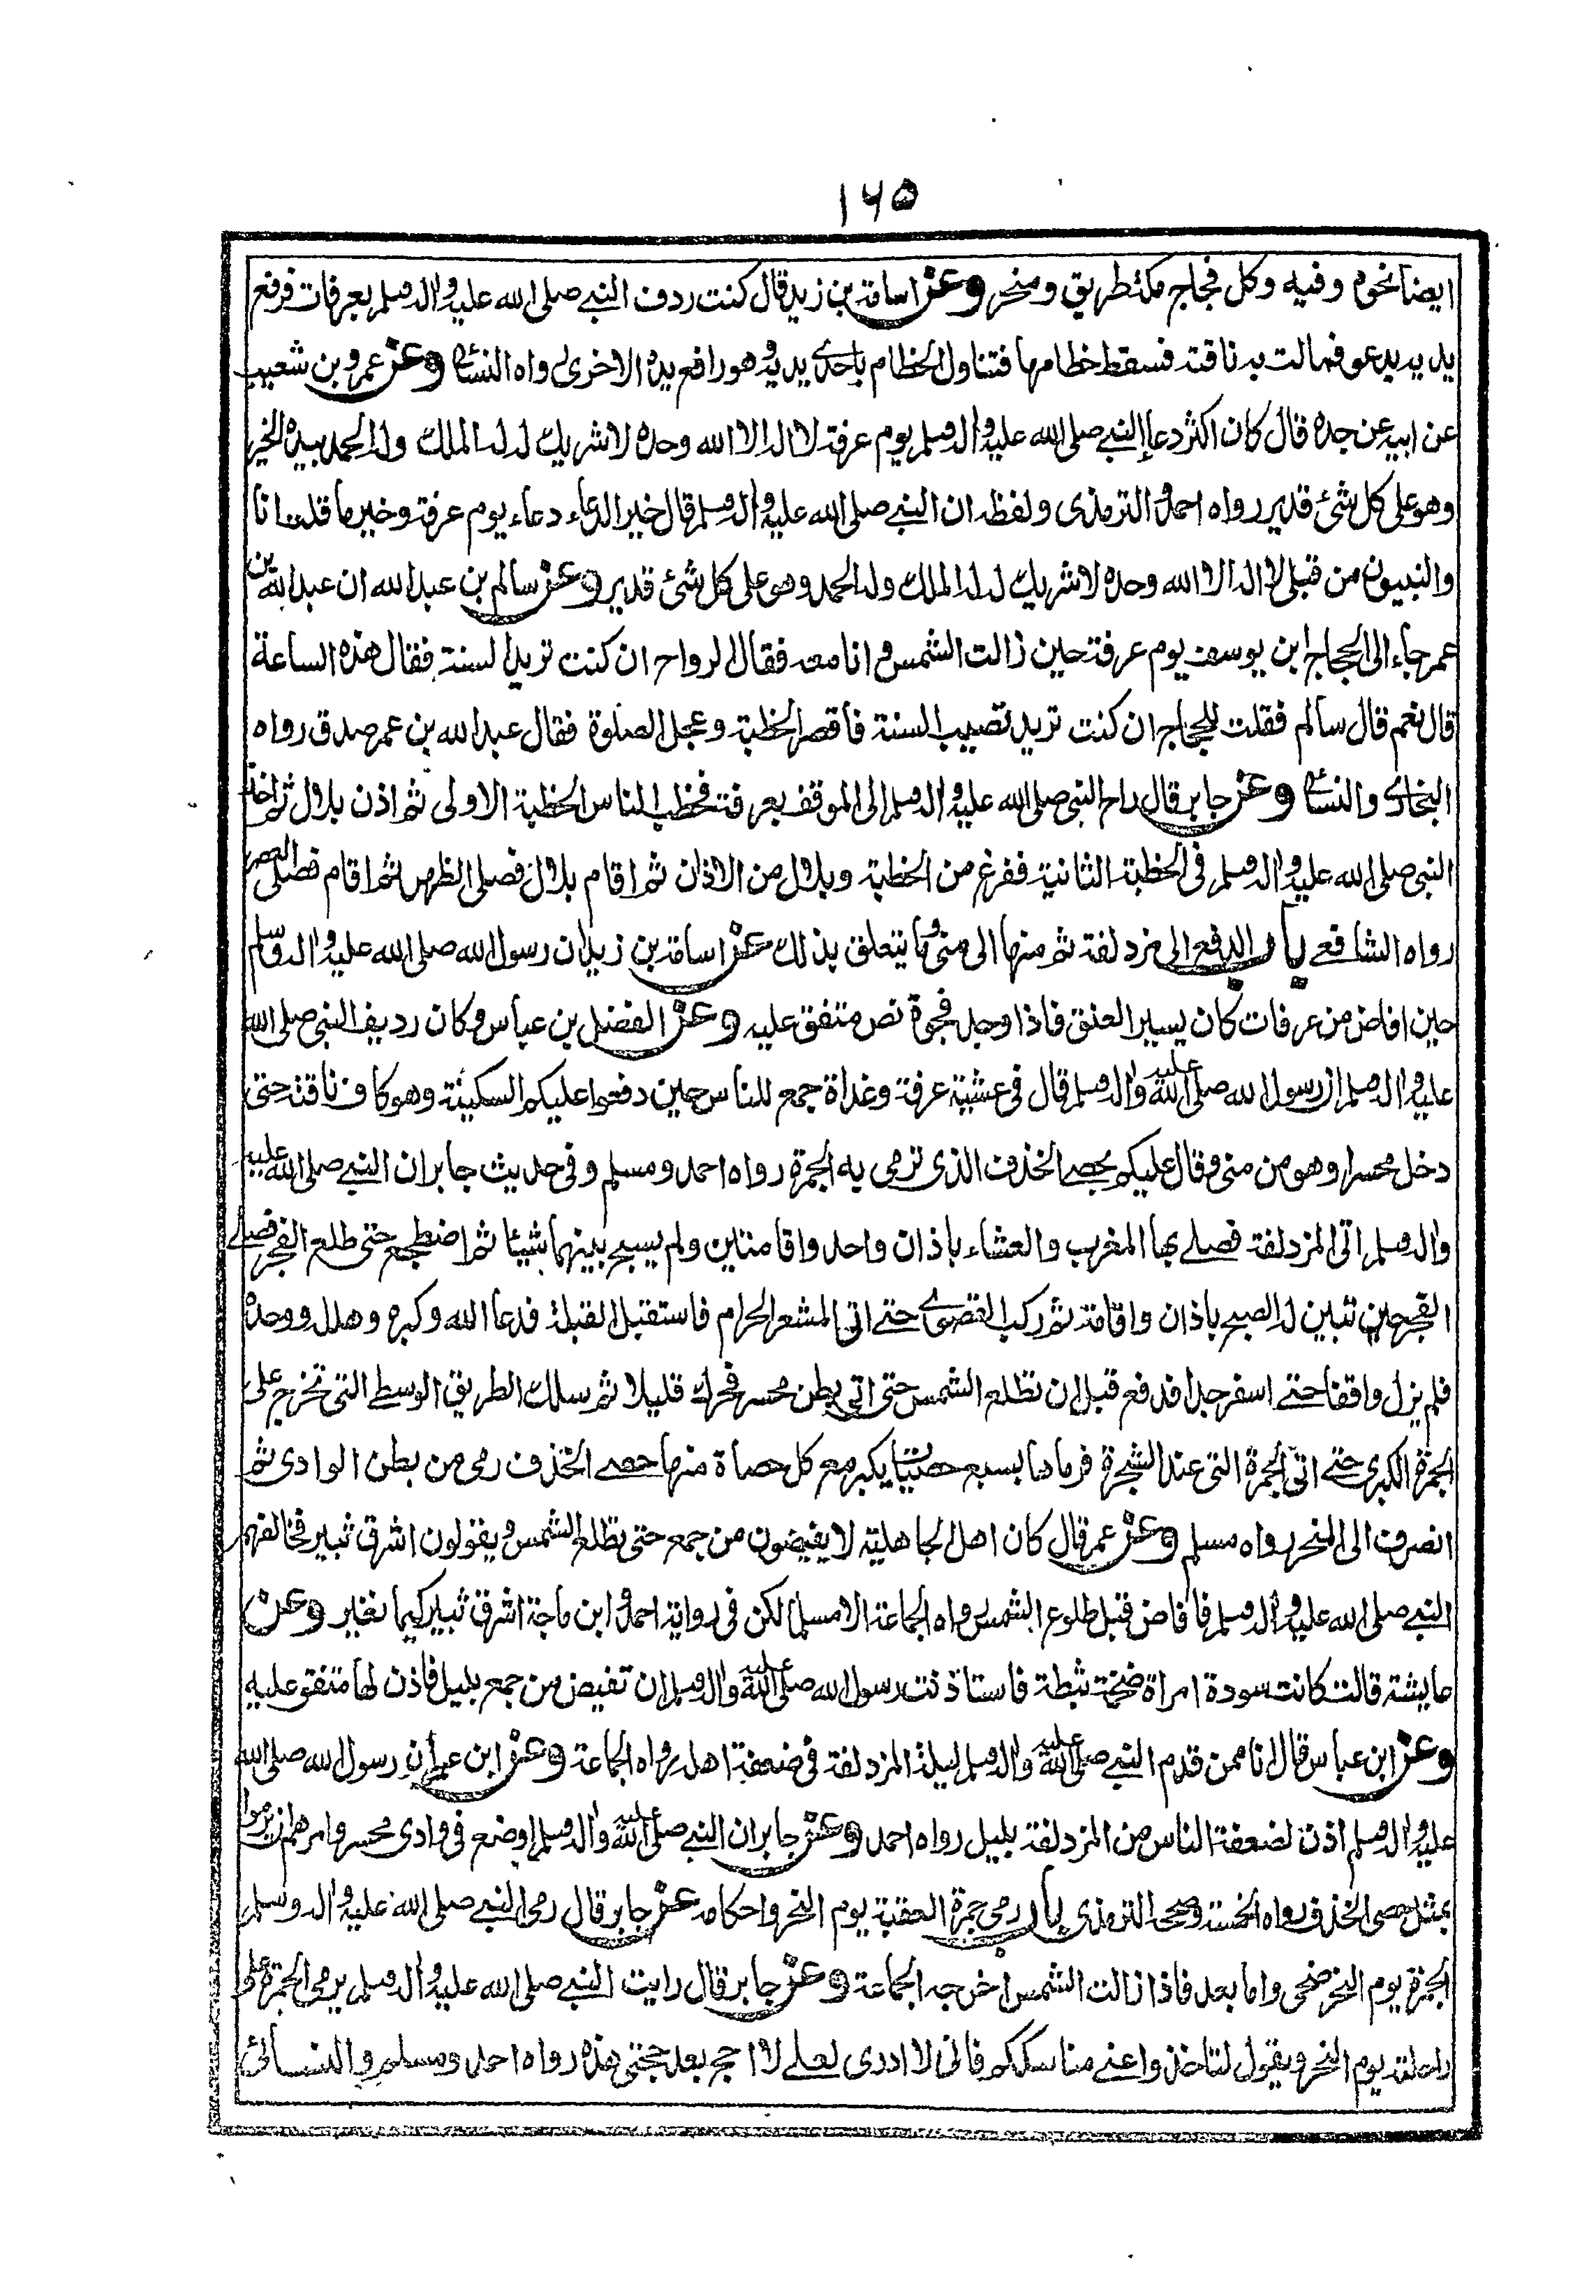 ١٦٥
ايضا نحوه وفيه وكل فجاج مكة طريق ومنحر وعن اسامة بن زيد قال كنت ردف النبي صلى الله عليه واله وسلم بعرفات فرفع
يديه يدعو فمالت به ناقته فسقط خطامها فتناول الخطام باحدى يديه وهو رافع يده الاخرى رواه النسائي وعن عمرو بن شعيب
عن ابيه عن جده قال كان اكثر دعاء النبي صلى الله عليه واله وسلم يوم عرفة لا اله الا الله وحده لا شريك له له الملك وله الحمد بيده الخير
وهو على كل شئ قدير رواه احمد والترمذى ولفظه ان النبي صلى الله عليه واله وسلم قال خير الدعاء دعاء يوم عرفة وخير ما قلت انا
والنبيون من قبلى لا اله الا الله وحده لا شريك له له الملك وله الحمد وهو على كل شئ قدير وعن سالم بن عبد الله ان عبد الله بن
عمر جاء الى الحجاج ابن يوسف يوم عرفة حين زالت الشمس وانا معه فقال الرواح ان كنت تريد السنة فقال هذه الساعة
قال نعم قال سالم فقلت للحجاج ان كنت تريد تصيب السنة فاقصر الخطبة وعجل الصلوة فقال عبد الله بن عمر صدق رواه
البخارى والنسائى وعن جابر قال راح النبى صلى الله عليه واله وسلم الى الموقف بعرفة فخطب الناس الخطبة الاولى ثم اذن بلال ثم اخذ
النبى صلى الله عليه واله وسلم فى الخطبة الثانية ففرغ من الخطبة وبلال من الاذان ثم اقام بلال فصلى الظهر ثم اقام فصلى العصر
رواه الشافعى باب الدفع الى مزدلفة ثم منها الى منى وما يتعلق بذلك عن اسامة بن زيد ان رسول الله صلى الله عليه واله وسلم
حين افاض من عرفات كان يسير العنق فاذا وجد فجوة نص متفق عليه وعن الفضل بن عباس وكان رديف النبى صلى الله
عليه واله وسلم ان رسول الله صلى الله عليه واله وسلم قال فى عشية عرفة وغداة جمع للناس حين دفعوا عليكم السكينة وهو كاف ناقته حتى
دخل محسرا وهو من منى وقال عليكم بحصى الخذف الذى ترمى به الجمرة رواه احمد ومسلم وفى حديث جابر ان النبي صلى الله عليه
واله وسلم اتى المزدلفة فصلے بها المغرب والعشاء باذان واحد واقامتين ولم يسبح بينهما شيئا ثم اضطجع حتى طلع الفجر فصلے
الفجر حين تبين له الصبح باذان واقامة ثم ركب القصوى حتے اتى المشعر الحرام فاستقبل القبلة فدعا الله وكبره وهلله ووحده
فلم يزل واقفا حتے اسفر جدا فدفع قبل ان تطلع الشمس حتى اتى بطن محسر فحرك قليلا ثم سلك الطريق الوسطے التى تخرج على
الجمرة الكبرى حتے اتى الجمرة التى عند الشجرة فرماها بسبع حصيات يكبر مع كل حصاة منها حصے الخذف رمى من بطن الوادى ثم
انصرف الى المنحر رواه مسلم وعن عمر قال كان اهل الجاهلية لا يفيضون من جمع حتى تطلع الشمس ويقولون اشرق ثبير فخالفهم
النبي صلى الله عليه واله وسلم فافاض قبل طلوع الشمس رواه الجماعة الا مسلما لكن فى رواية احمد وابن ماجة اشرق ثبير كيما نغير وعن
عايشة قالت كانت سودة امراة ضخمة ثبطة فاستاذنت رسول الله صلى الله عليه واله وسلم ان تفيض من جمع بليل فاذن لها متفق عليه
وعن ابن عباس قال انا ممن قدم النبي صلى الله عليه واله وسلم ليلة المزدلفة فى ضعفة اهله رواه الجماعة وعن ابن عمر ان رسول الله صلى الله
عليه واله وسلم اذن لضعفة الناس من المزدلفة بليل رواه احمد وعن جابر ان النبي صلى الله عليه واله وسلم اوضع فى وادى محسر وامرهم ان يرموا
بمثل حصى الخذف رواه الخمسة وصححه الترمذى باب رمى جمرة العقبة يوم النحر واحكامه عن جابر قال رمى النبي صلى الله عليه واله وسلم
الجمرة يوم النحر ضحى واما بعد فاذا زالت الشمس اخرجه الجماعة وعن جابر قال رايت النبي صلى الله عليه واله وسلم يرمى الجمرة على
راحلته يوم النحر ويقول لتاخذوا عنے مناسككم فانى لا ادرى لعلے لا احج بعد حجتى هذه رواه احمد ومسلم والنسائى